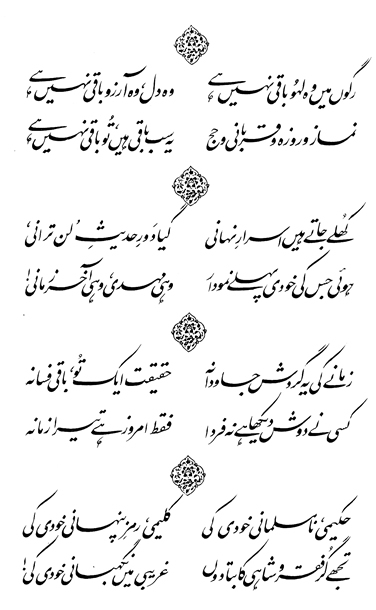 رگوں میں وہ لہُو باقی نہیں ہے وہ دل، وہ آرزو باقی نہیں ہے
نماز و روزہ و قربانی و حج یہ سب باقی ہیں، تُو باقی نہیں ہے
کھُلے جاتے ہیں اسرارِ نہانی گیا دَورِ حدیثِ 'لن ترانی'
ہوئی جس کی خودی پہلے نمودار وہی مہدی، وہی آخر زمانی!
زمانے کی یہ گردش جاودانہ حقیقت ایک تُو، باقی فسانہ
کسی نے دوش دیکھا ہے نہ فردا فقط امروز ہے تیرا زمانہ
حکیمی، نامسلمانی خودی کی کلیمی، رمزِ پنہانی خودی کی
تجھے گُر فقر و شاہی کا بتا دوں غریبی میں نگہبانی خودی کی!